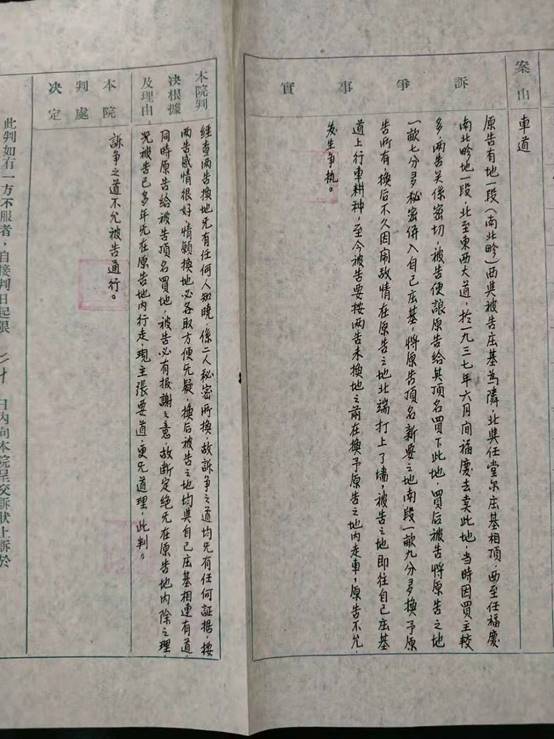 案由
車道
訴爭事實
原告有地一段(南北畛)西與被告庄基為隣,北與任堂尔庄基相頂,西至任福慶
南北畛地一段,北至東西大道,於一九三七年六月間福慶去卖此地,当時因買主較
多,両告关係密切,被告便讓原告給其頂名買下此地,買后被告將原告之地
一畝七分多秘密併入自己庄基,將原告頂名新要之地南段一畝九分多換予原
告所有,換后不久因闹敌情在原告之地北端打上了墻,被告之地即往自己庄基
道上行車耕种,至今被告要按両告未換地之前在換予原告之地内走車,原告不允
发生争执。
本院判决根據及理由
経查両告換地先有任何人知曉,係二人秘密所換,故訴争之道均先有任何証据,按
両告感情很好,情願換地必各取方便无疑,換后被告之地均與自己庄基相連有道,
同時原告給被告頂名買地,被告必有报謝之意,故断定絶先在原告地内除之理,
况被告已多年先在原告地内行走,現主張要道,更先道理,此判。
本院判處决定
訴爭之道不允被告通行。
此判如有一方不服者,自接判日起限二十日内向本院呈交訴狀上訴於